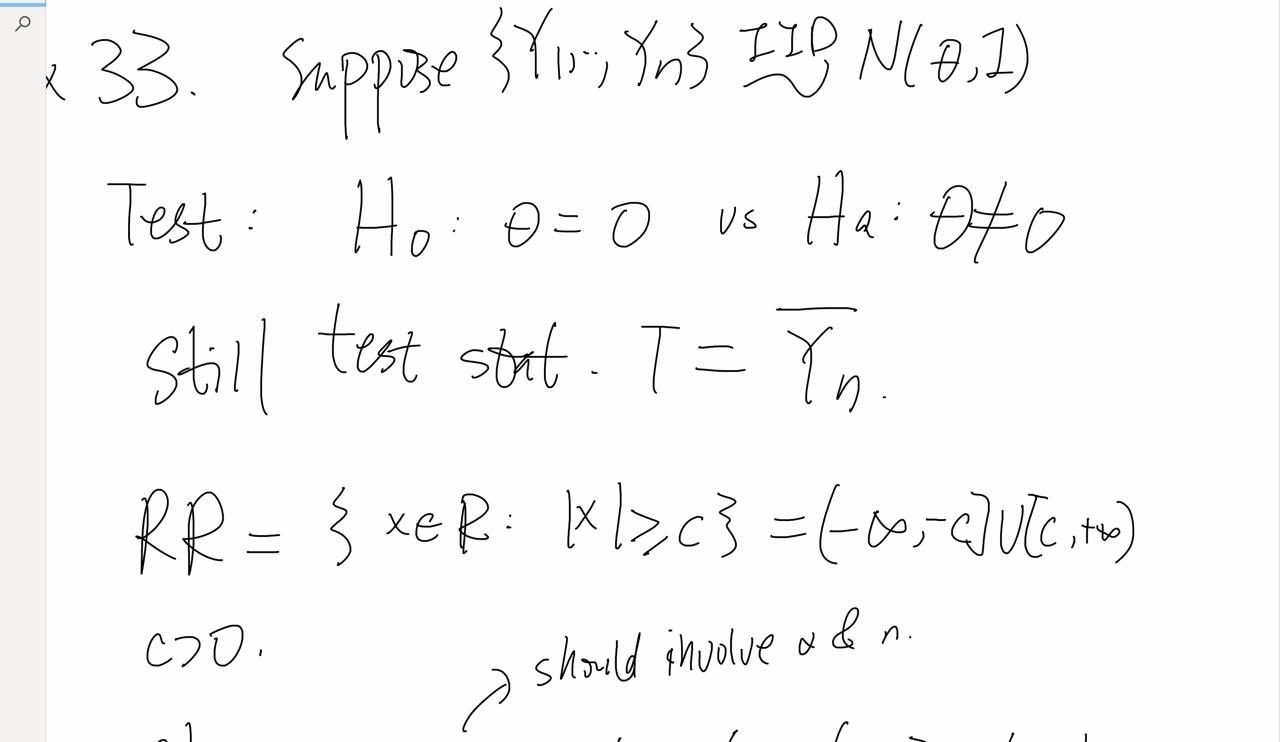 x 33. Suppose {Y1, ..., Yn} IID ~ N(θ,1)
Test: H0: θ = 0 vs Ha: θ≠0
Still test stat. T = Y̅n.
RR = { x∈R: |x|≥c} = (-∞,-c]∪[c,+∞)
c>0.
should involve α & n.